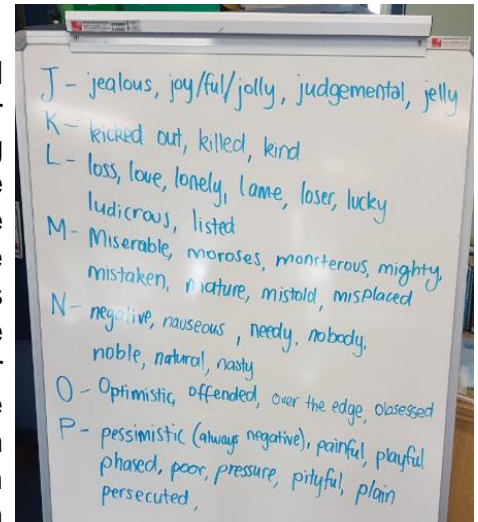 J - jealous, joy/ful/jolly, judgemental, jelly
K - kicked out, killed, kind
L - loss, love, lonely, lame, loser, lucky
ludicrous, listed
M - Miserable, moroses, monsterous, mighty,
mistaken, mature, mistold, misplaced
N - negative, nauseous, needy, nobody,
noble, natural, nasty
O - Optimistic, offended, over the edge, obsessed
P - pessimistic (always negative), painful, playful
phased, poor, pressure, pityful, plain
persecuted,